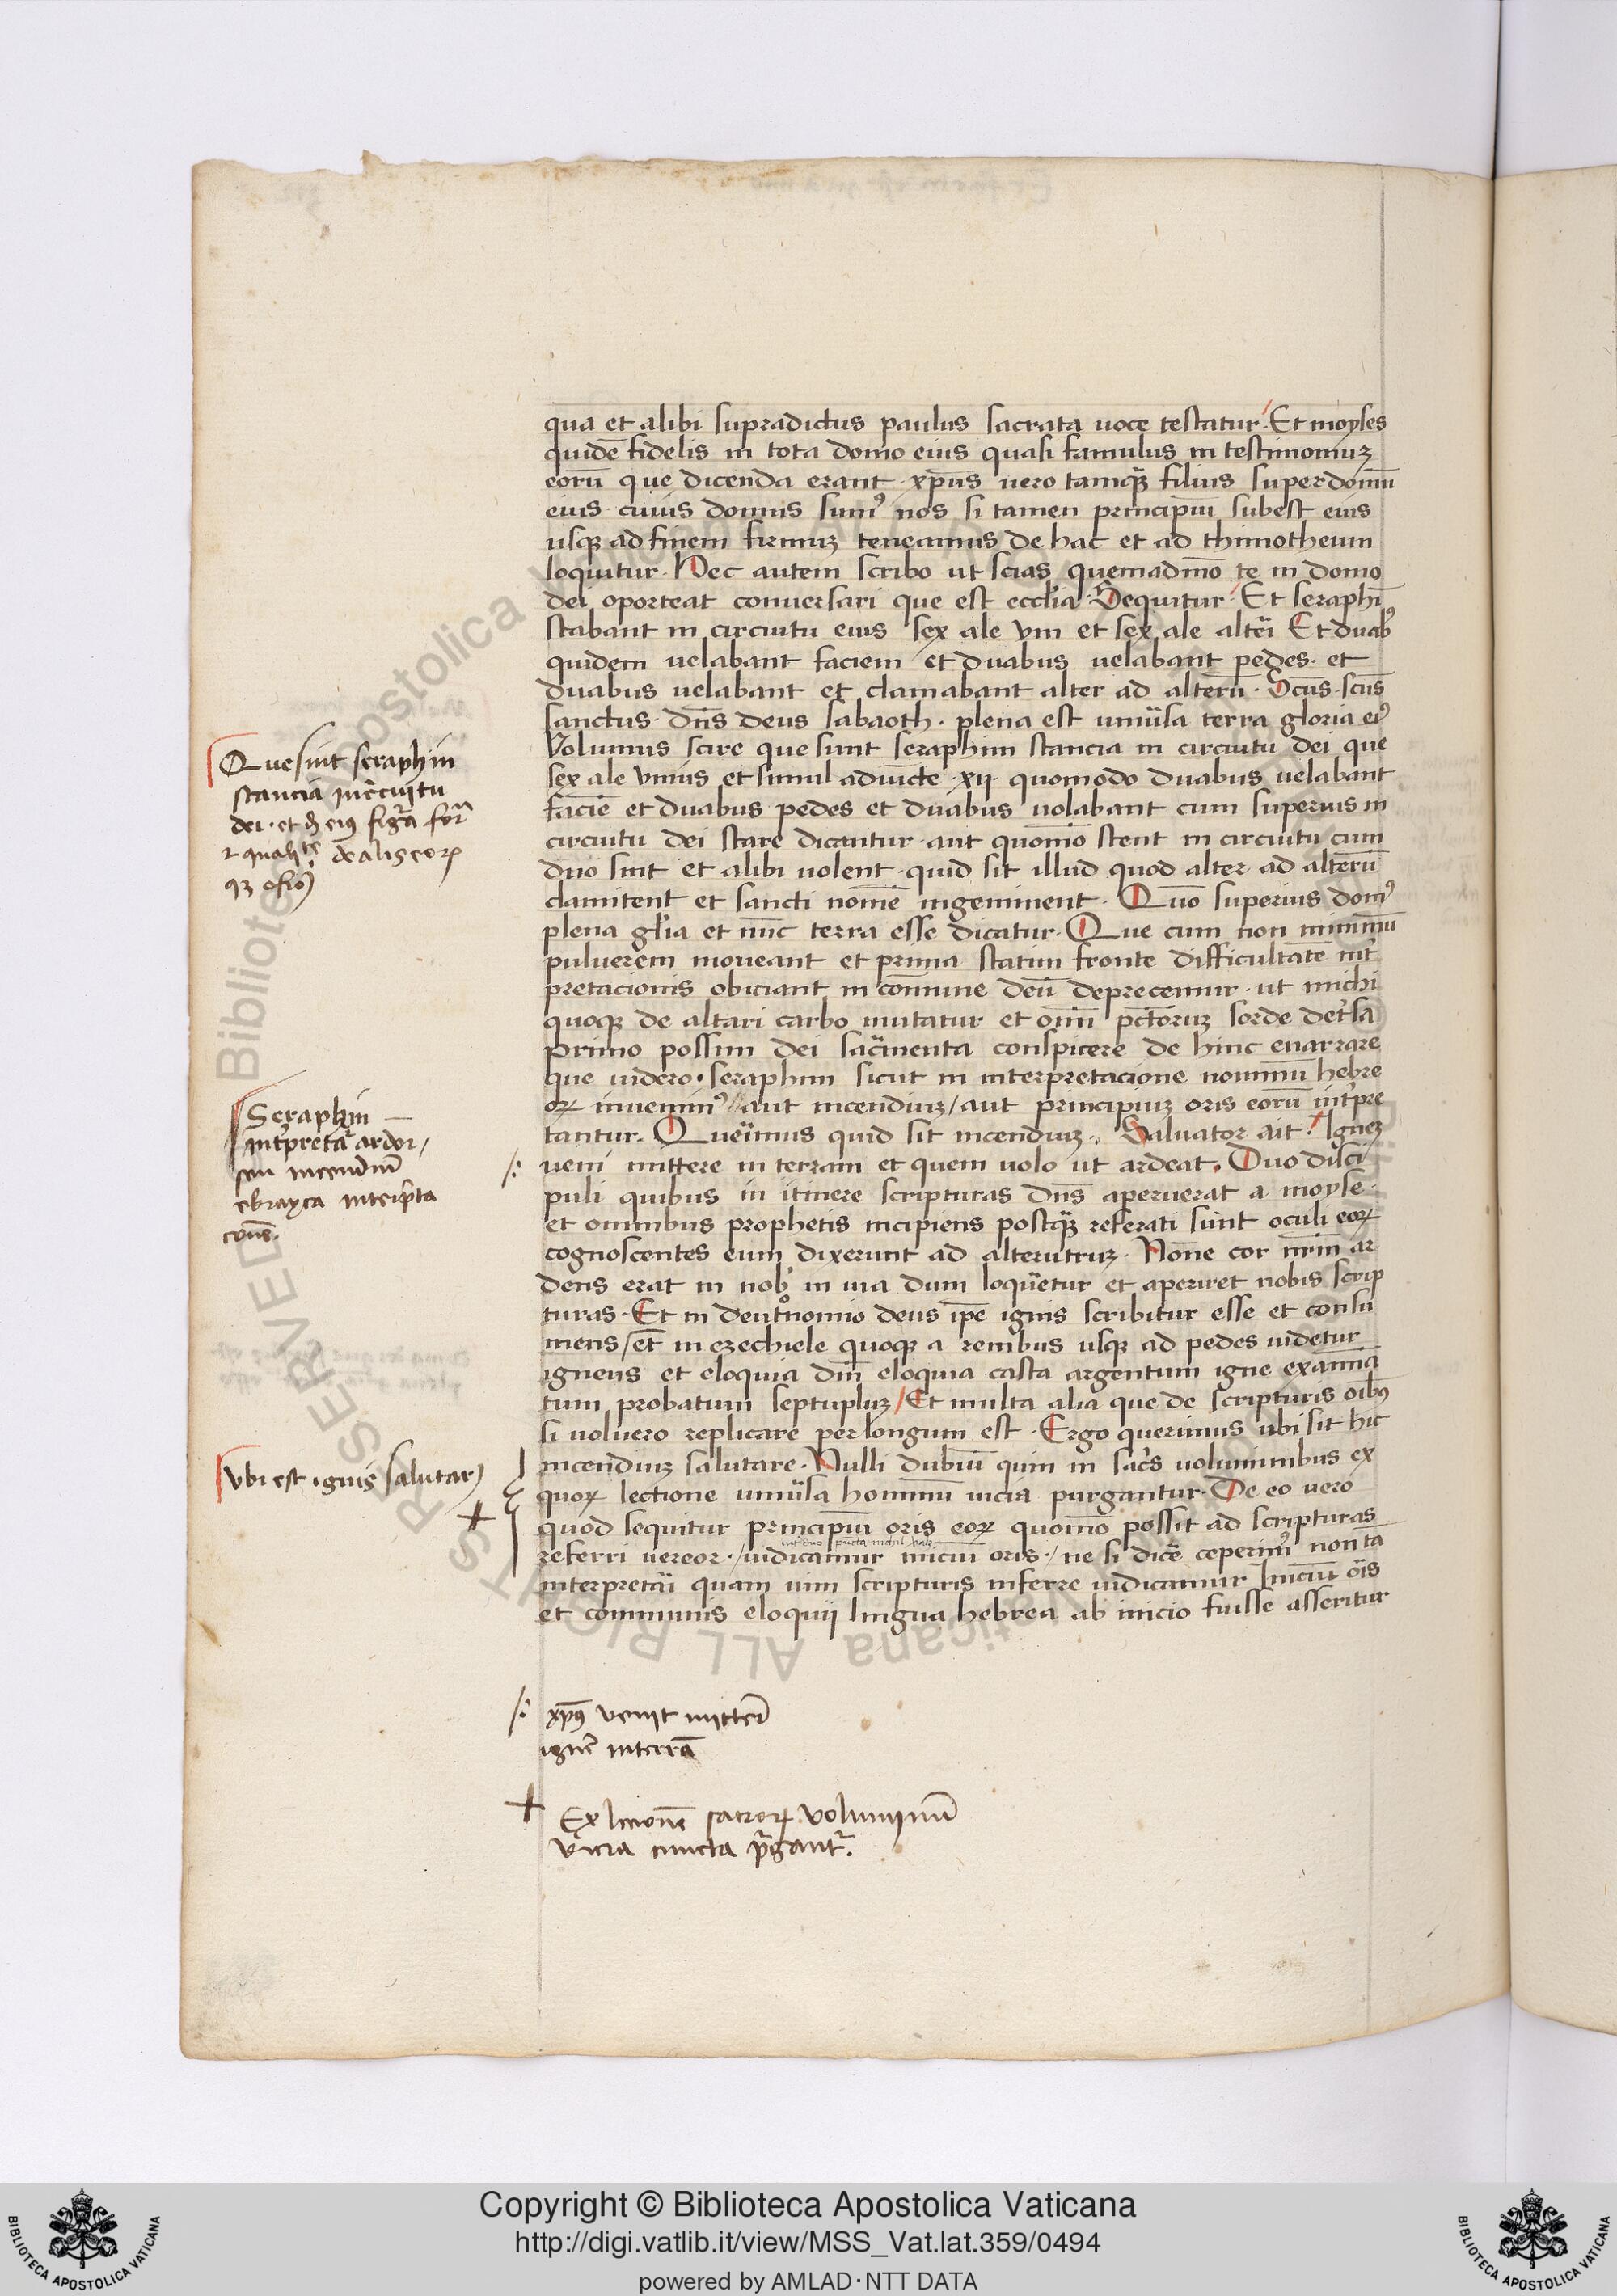 qua et alibi supradictus paulus sacrata uoce testatur. Et moyses
quidē fidelis in tota domo eius quasi famulus in testimoniuʒ
eorū que dicenda erant. xpūs uero tamqʒ filius super domū
eius. cuius domus sum⁹ nos si tamen principiū subest eius
usqʒ ad finem firmuʒ teneamus de hac et ad thimotheum
loquitur. Hec autem scribo ut scias quemadmō te in domo
dei oporteat conuersari que est ecclīa. Sequitur. Et seraphī
stabant in circuitu eius sex ale vni et sex ale altēi Et duab⁹
quidem uelabant faciem et duabus uelabant pedes. et
duabus uelabant et clamabant alter ad alterū. Scūs. scūs
sanctus. dn̄s deus sabaoth. plena est uniūsa terra gloria ei⁹
Volumus scire que sunt seraphim stancia in circuitu dei que
sex ale vnius et simul adiūcte. xij. quomodo duabus uelabant
faciē et duabus pedes et duabus uolabant cum superius in
circuitu dei stare dicantur. aut quomō stent in circuitu cum
duo sint et alibi uolent. quid sit illud quod alter ad alterū
clamitent et sancti nomē ingeminent. Quō superius dom⁹
plena glīa et nūc terra esse dicatur. Que cum non minimū
puluerem moueant et prima statim fronte difficultatē int̄
pretacionis obiciant in cōmune deū deprecemur. ut michi
quoqʒ de altari carbo mutatur et omī pctōruʒ sorde det̄sa
primo possim dei sac̄menta conspicere de hinc enarrare
que uidero. seraphim sicut in interpretacione nominū hebre
oꝝ inuenim⁹ / aut incendiuʒ / aut principiuʒ oris eorū int̄pre
tantur. Quēimus quid sit incendiuʒ. Saluator ait. Igneʒ
ueni mittere in terram et quem uolo ut ardeat. Duo disci
puli quibus in itinere scripturas dn̄s aperuerat a moyse.
et omnibus prophetis incipiens postqʒ reserati sunt oculi eoꝝ
cognoscentes eum dixerunt ad alterutruʒ. Nonē cor nr̄m ar
dens erat in nob⁹ in uia dum loquētur et aperiret nobis scrip
turas. Et in deut̄onomio deus ip̄e ignis scribitur esse et consu
mens / et in ezechiele quoqʒ a renibus usqʒ ad pedes uidetur
igneus et eloquia dn̄i eloquia casta argentum igne examīa
tum probatum septupluʒ / Et multa alia que de scripturis oīb⁹
si voluero replicare perlongum est. Ergo querimus ubi sit hic
incendiuʒ salutare. Nulli dubiū quin in sac̄s uoluminibus ex
quoꝝ lectione uniūsa hominū uicia purgantur. De eo uero
quod sequitur principiū oris eoꝝ quomō possit ad scripturas
referri uereor. / uidicamur iniciū oris. / ne si dicē ceperim⁹ non tā
interpretāi quam uim scripturis inferre uidicamur Iniciū ōis
et communis eloquij lingua hebrea ab inicio fuisse asseritur
Que sint seraphin
stancia in circuitu
dei. et
Seraphin
int̄pretat̄ ardor /
seu incendiū
ebrayca interp̄ta
cōne.
Vbi est ignis salutar̄
xp̄us venit mittē
ignē in terrā
Ex leccionē sacroꝝ voluminū
vicia cuncta p̄gant̄.
Copyright © Biblioteca Apostolica Vaticana
http://digi.vatlib.it/view/MSS_Vat.lat.359/0494
powered by AMLAD·NTT DATA
BIBLIOTECA APOSTOLICA VATICANA
BIBLIOTECA APOSTOLICA VATICANA